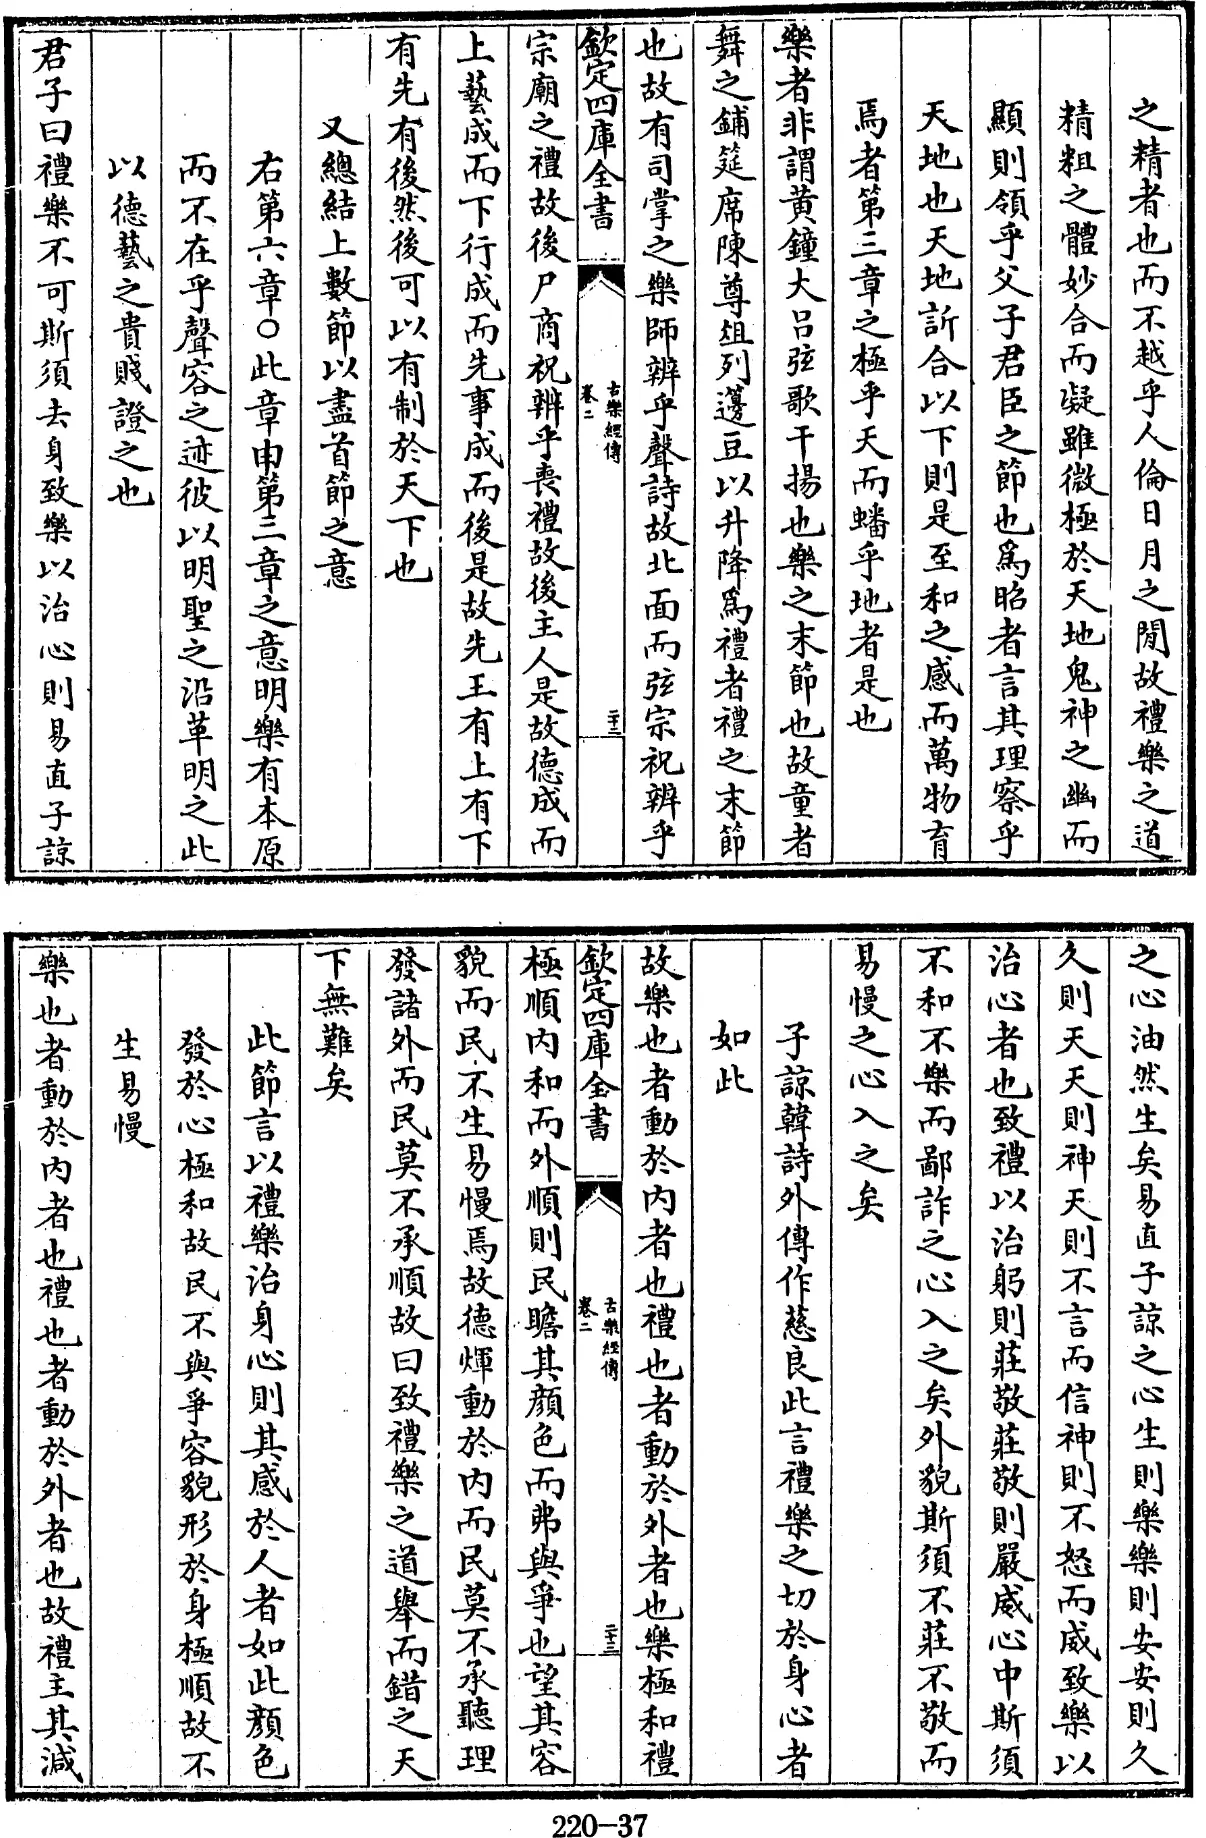 之精者也而不越乎人倫日月之閒故禮樂之道
精粗之體妙合而凝雖微極於天地鬼神之幽而
顯則領乎父子君臣之節也爲昭者言其理察乎
天地也天地訢合以下則是至和之感而萬物育
焉者第三章之極乎天而蟠乎地者是也
樂者非謂黃鐘大呂弦歌干揚也樂之末節也故童者
舞之鋪筵席陳尊俎列籩豆以升降爲禮者禮之末節
也故有司掌之樂師辨乎聲詩故北面而弦宗祝辨乎
欽定四庫全書
古樂經傳
卷二
二十二
宗廟之禮故後尸商祝辨乎喪禮故後主人是故德成而
上藝成而下行成而先事成而後是故先王有上有下
有先有後然後可以有制於天下也
又總結上數節以盡首節之意
右第六章○此章申第三章之意明樂有本原
而不在乎聲容之迹彼以明聖之沿革明之此
以德藝之貴賤證之也
君子曰禮樂不可斯須去身致樂以治心則易直子諒
之心油然生矣易直子諒之心生則樂樂則安安則久
久則天天則神天則不言而信神則不怒而威致樂以
治心者也致禮以治躬則莊敬莊敬則嚴威心中斯須
不和不樂而鄙詐之心入之矣外貌斯須不莊不敬而
易慢之心入之矣
子諒韓詩外傳作慈良此言禮樂之切於身心者
如此
故樂也者動於內者也禮也者動於外者也樂極和禮
欽定四庫全書
古樂經傳
卷二
二十三
極順內和而外順則民瞻其顏色而弗與爭也望其容
貌而民不生易慢焉故德煇動於內而民莫不承聽理
發諸外而民莫不承順故曰致禮樂之道舉而錯之天
下無難矣
此節言以禮樂治身心則其感於人者如此顏色
發於心極和故民不與爭容貌形於身極順故不
生易慢
樂也者動於內者也禮也者動於外者也故禮主其減
220-37